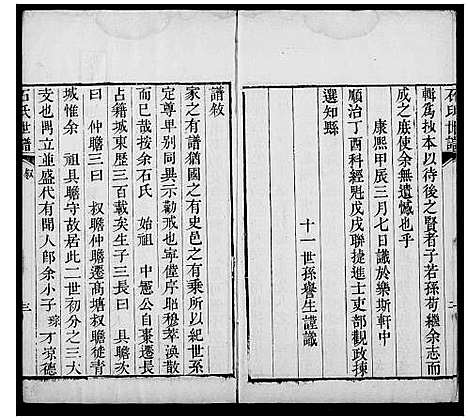 石氏世譜
輯爲抄本以待後之賢者子若孫苟繼余志而
成之庶使余無遺憾也乎
康熙甲辰三月七日識於樂斯軒中
順治丁酉科經魁戊戌聯捷進士吏部觀政揀
選知縣
十一世孫譽生謹識
譜敘
家之有譜猶國之有史邑之有乘所以紀世系
定尊卑別同異示勸戒也寧僅序昭穆萃渙散
而已哉按余石氏 始祖 中憲公自棗遷長
占籍城東歷三百載矣生子三長曰 具瞻次
曰 仲瞻三曰 叔瞻仲瞻遷高塘叔瞻徙青
城惟余 祖具瞻守故居此二世初分之三大
支也門立並盛代有聞人郎余小子 琮 才涼德
石氏世譜 敘 三